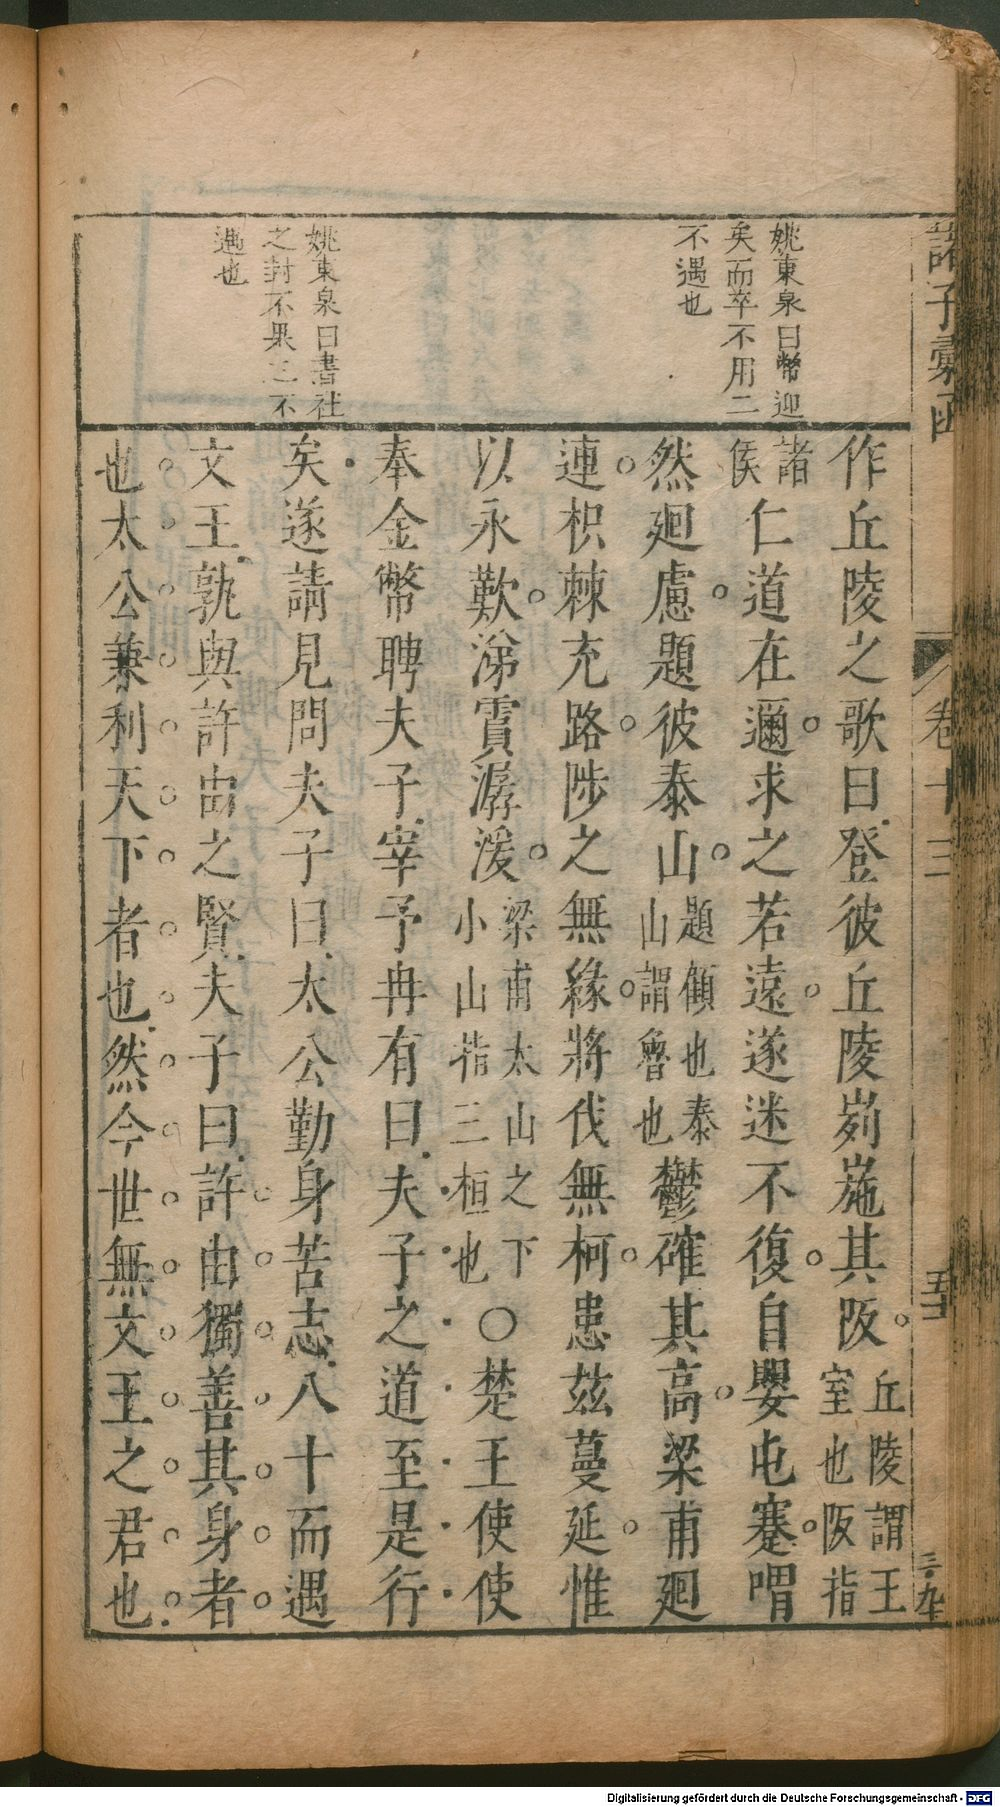 諸子彙函
卷十三
姚東泉曰幣迎
矣而卒不用二
不遇也
姚東泉曰書社
之封不果三不
遇也
作丘陵之歌曰登彼丘陵峛崺其阪丘陵謂王室也阪指
諸侯仁道在邇求之若遠遂迷不復自嬰屯蹇喟
然廻慮題彼泰山題傾也泰山謂魯也鬱確其高梁甫廻
連枳棘充路陟之無緣將伐無柯患茲蔓延惟
以永歎涕霣潺湲梁甫太山之下小山指三桓也〇楚王使使
奉金幣聘夫子宰予冉有曰夫子之道至是行
矣遂請見問夫子曰太公勤身苦志八十而遇
文王孰與許由之賢夫子曰許由獨善其身者
也太公兼利天下者也然今世無文王之君也
Digitalisierung gefördert durch die Deutsche Forschungsgemeinschaft - DFG